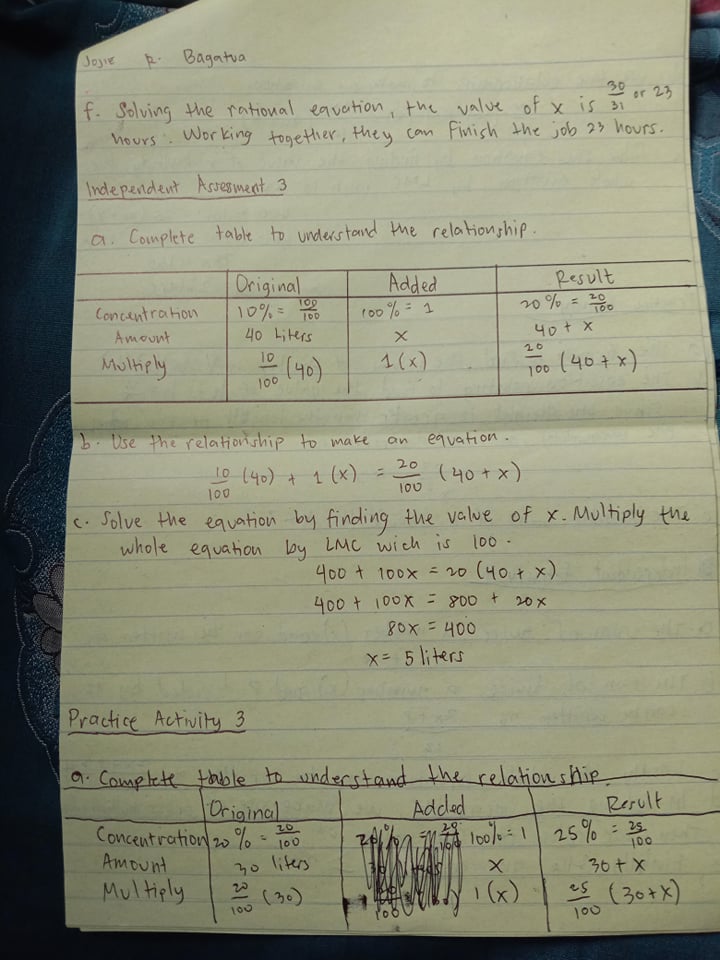 Josie R. Bagatua
f. Solving the rational equation, the value of x is 30/31 or 23
hours. Working together, they can finish the job 23 hours.
Independent Assesment 3
a. Complete table to understand the relationship.
Original Added Result
Concentration 10% = 100/100 100% = 1 20% = 20/100
Amount 40 Liters x 40 + x
Multiply 10/100 (40) 1(x) 20/100 (40 + x)
b. Use the relationship to make an equation.
10/100 (40) + 1(x) = 20/100 (40 + x)
c. Solve the equation by finding the value of x. Multiply the
whole equation by LMC wich is 100.
400 + 100x = 20 (40 + x)
400 + 100x = 800 + 20x
80x = 400
x = 5 liters
Practice Activity 3
a. Complete table to understand the relationship.
Original Added Result
Concentration 20% = 20/100 100% = 1 25% = 25/100
Amount 30 liters x 30 + x
Multiply 20/100 (30) 1(x) 25/100 (30+x)